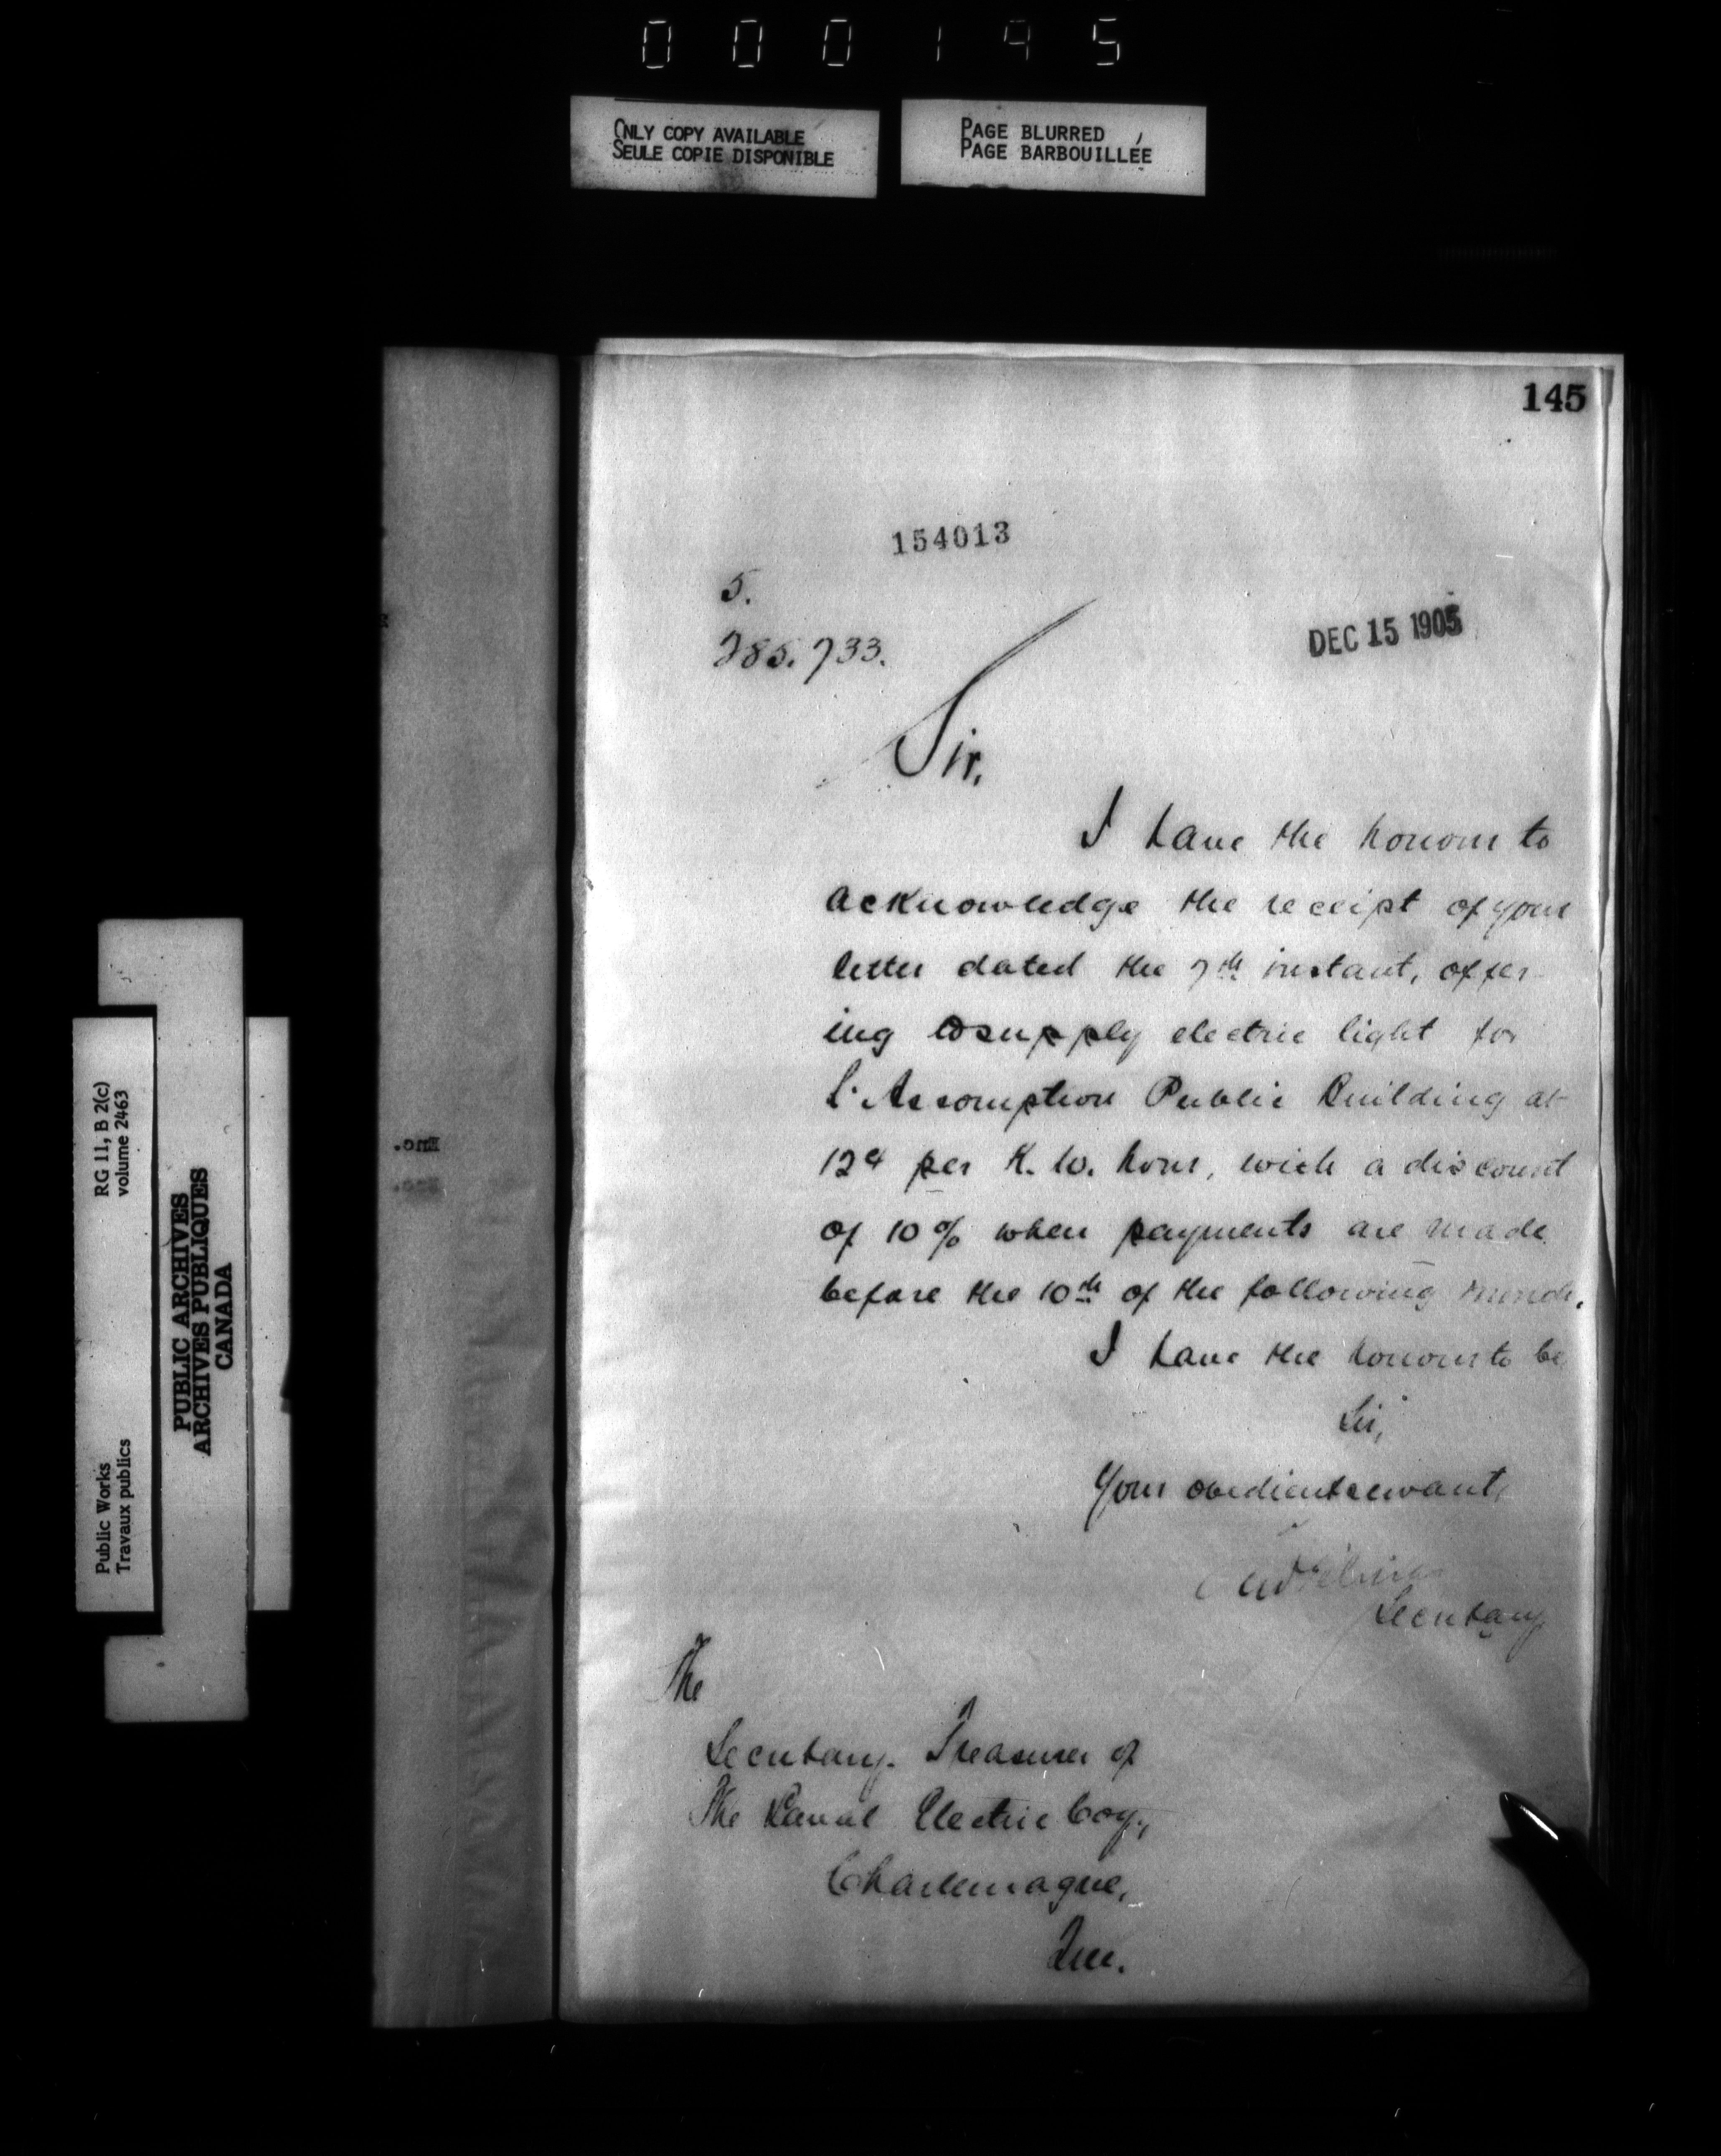 000195
ONLY COPY AVAILABLE
SEULE COPIE DISPONIBLE
PAGE BLURRED
PAGE BARBOUILLÉE
145
154013
5.
285.733.
DEC 15 1905
Sir,
I have the honour to
acknowledge the receipt of your
letter dated the 7th instant, offer-
ing to supply electric light for
L'Assomption Public Building at
12¢ per K.W. hour, with a discount
of 10% when payments are made
before the 10th of the following month.
I have the honour to be,
Sir,
Your obedient servant,
Secretary
The
Secretary-Treasurer of
The Laval Electric Coy.,
Charlemagne,
Que.
Enc.
Enc.
RG 11, B 2(c)
volume 2463
Public Works
Travaux publics
PUBLIC ARCHIVES
ARCHIVES PUBLIQUES
CANADA